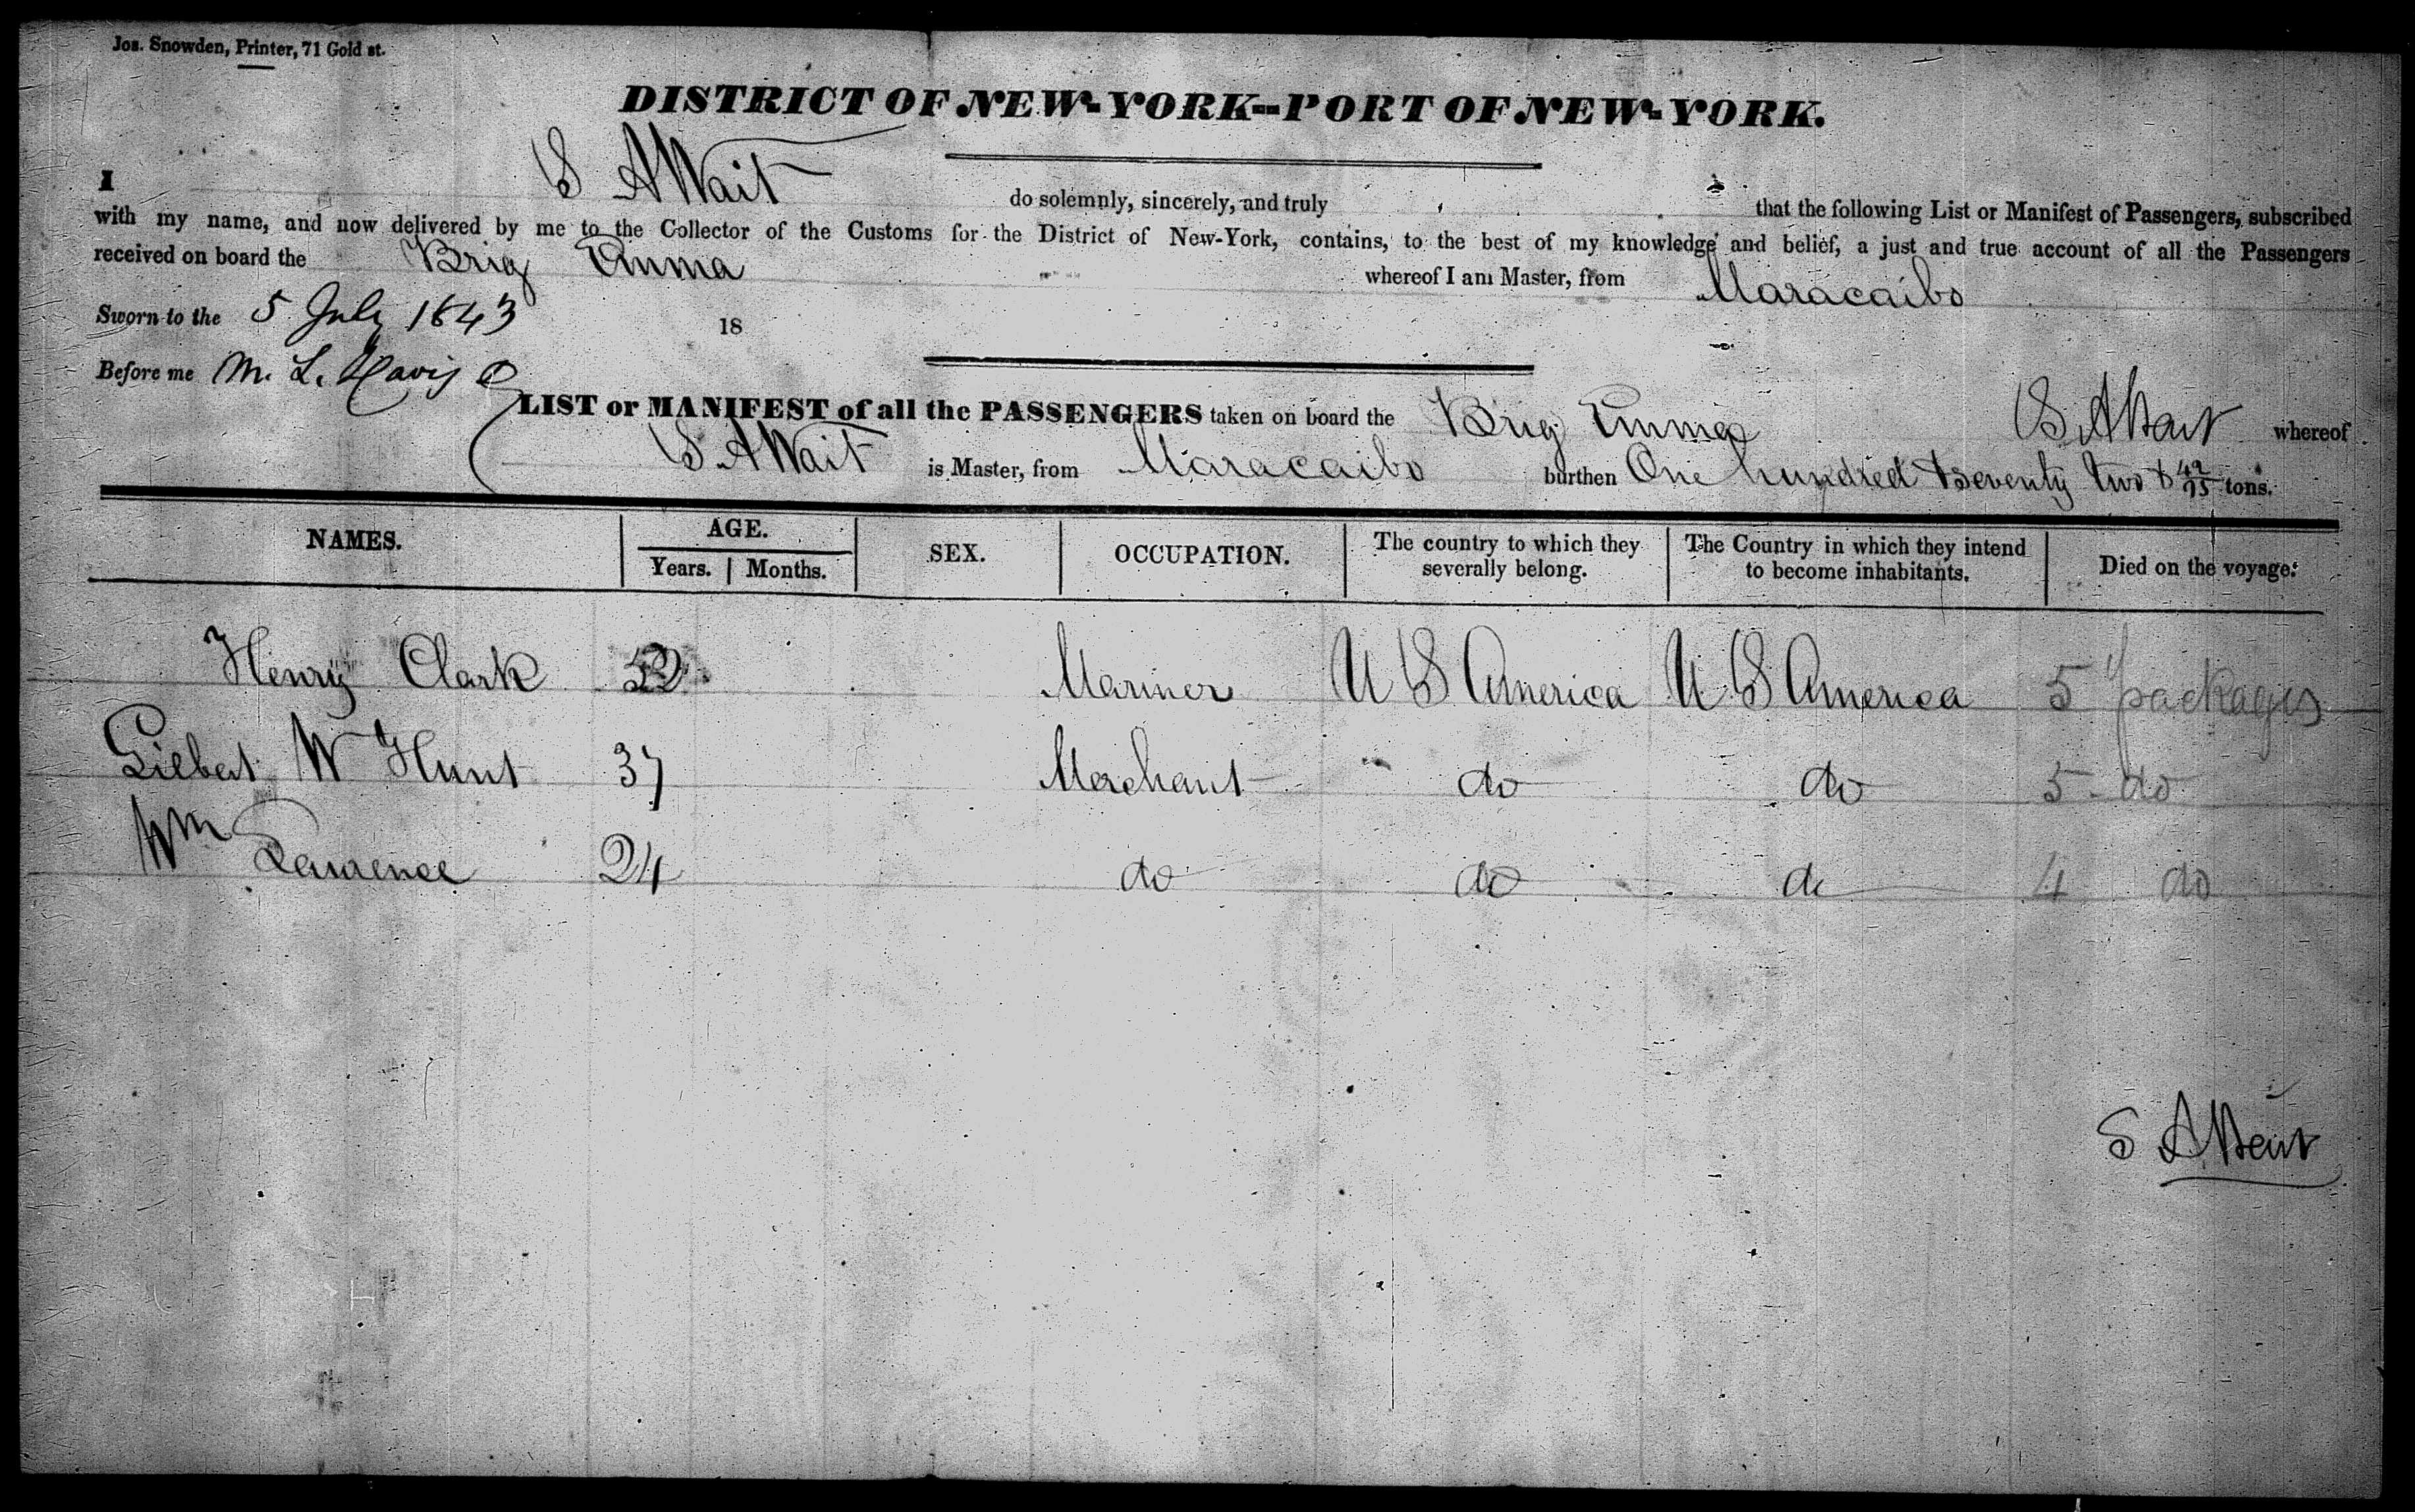 Jos. Snowden, Printer, 71 Gold st.
DISTRICT OF NEW-YORK--PORT OF NEW-YORK.
I S A Wait do solemnly, sincerely, and truly that the following List or Manifest of Passengers, subscribed
with my name, and now delivered by me to the Collector of the Customs for the District of New-York, contains, to the best of my knowledge and belief, a just and true account of all the Passengers
received on board the Brig Emma whereof I am Master, from Maracaibo
Sworn to the 5 July 1843 18
Before me M. L. Davis
LIST or MANIFEST of all the PASSENGERS taken on board the Brig Emma S A Wait whereof
S A Wait is Master, from Maracaibo burthen One hundred & seventy two & 42/95 tons.
NAMES. AGE. Years. Months. SEX. OCCUPATION. The country to which they severally belong. The Country in which they intend to become inhabitants. Died on the voyage.
Henry Clark Mariner U S America U S America 5 packages
Gilbert W Hunt 37 Merchant do do 5 do
Wm Lawrence 24 do do do 4 do
S A Wait